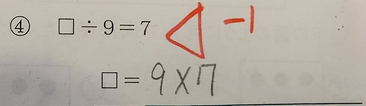 ④ □÷9=7 -1
□=9×17